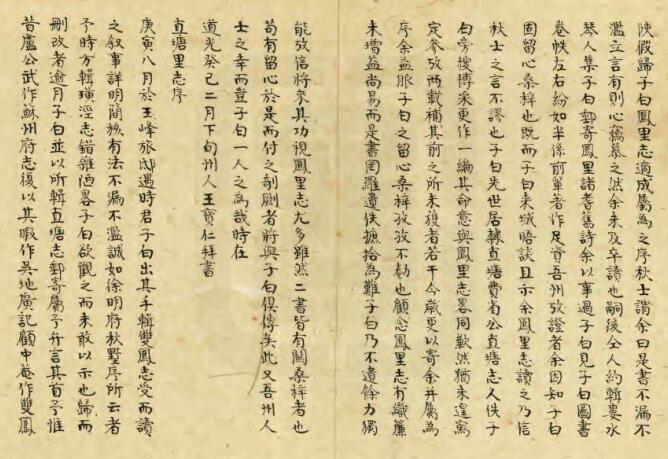 陝假歸子白鳳里志適成屬為之序秋士謂余曰是書不漏不
濫立言有則心竊慕之然余未及卒讀也嗣後仝人約輯婁水
琴人集子白郵寄鳳里諸耆舊詩余以事過子白見子白圖書
卷帙左右紛如半係前輩著作足資吾州攷證者余因知子白
固留心桑梓也既而子白來城晤談且示余鳳里志讀之乃信
秋士之言不謬也子白先世居隸直塘費省公直塘志人佚子
白旁搜博采更作一編其命意與鳳里志畧同歉然猶未遑寫
定參攷兩載補其前之所未備者若干今歲更以寄余并屬為
序余益服子白之留心桑梓孜孜不勌也顧念鳳里志有織簾
未增益尚易而是書罔羅遺佚摭拾為難子白乃不遺餘力獨
能攷信將來其功視鳳里志尤多雖然二書皆有關桑梓者也
苟有留心於是而付之剞劂者將與子白俱傳矣此又吾州人
士之幸而豈子白一人之為哉時在
道光癸巳二月下旬州人王寳仁拜書
直塘里志序
庚寅八月於玉峰旅邸遇時君子白出其手輯雙鳳志受而讀
之叙事詳明簡核有法不漏不濫誠如徐明府秋墅序所云者
予時方輯璜涇志錯雜陋畧子白欲觀之而未敢以示也歸而
刪改者逾月子白並以所輯直塘志郵寄屬予弁言其首予惟
昔盧公武作蘇州府志復以其暇作吳地廣記顧中菴作雙鳳